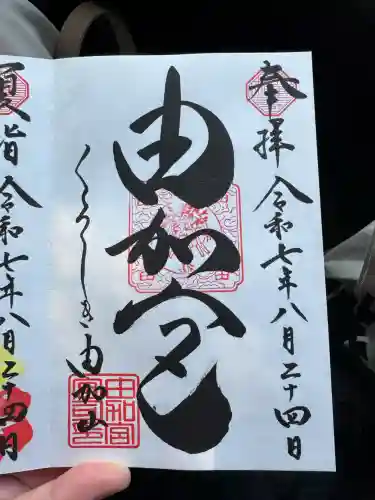 奉拝
令和七年八月二十四日
由加宮
くらしき由加山
由加宮
夏詣
令和七年八月二十四日